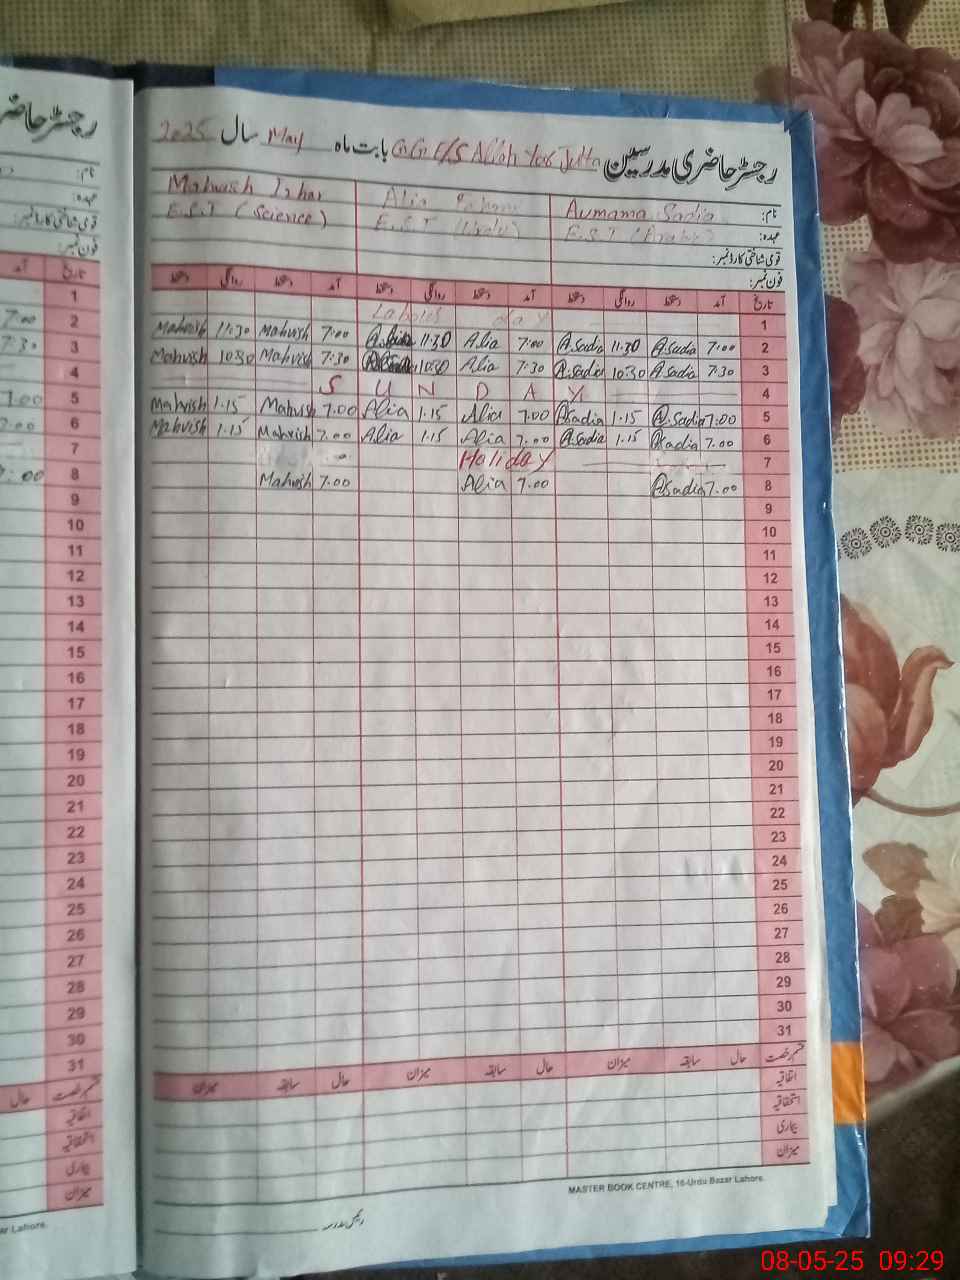 رجسٹر حاضری مدرسین G.G.E/S بابت ماہ May سال 2025
نام: Aumama Sadia Alia Mahwish Izhar
عہدہ: E.S.T (Arabic) E.S.T (Urdu) E.S.T (Science)
قومی شناختی کارڈ نمبر:
فون نمبر:
تاریخ آمد دستخط روانگی دستخط آمد دستخط روانگی دستخط آمد دستخط روانگی دستخط
1 Labour day
2 7:00 @.Sadia 11:30 @.Sadia 7:00 Alia 11:30 7:00 Mahvish 11:30 Mahvish
3 7.30 @.Sadia 10:30 @.Sadia 7.30 Alia 10:30 7.30 Mahvish 10:30 Mahvish
4 SUNDAY
5 7:00 @.Sadia 1.15 @Sadia 7.00 Alia 1.15 Alia 7.00 Mahvish 1.15 Mahvish
6 7.00 @Sadia 1.15 @.Sadia 7.00 Alia 1.15 Alia 7.00 Mahvish 1.15 Mahvish
7 Holiday
8 7.00 @Sadia 7.00 Alia 7.00 Mahvish
9
10
11
12
13
14
15
16
17
18
19
20
21
22
23
24
25
26
27
28
29
30
31
قسم رخصت حال سابقہ میزان حال سابقہ میزان حال سابقہ میزان
اتفاقیہ
استحقاقیہ
بیماری
میزان
MASTER BOOK CENTRE, 16-Urdu Bazar Lahore.
رئیس مدرسہ
رجسٹر حاضر
نام:
عہدہ:
قومی شناختی کارڈ نمبر:
فون نمبر:
تاریخ آمد
1
2 7:00
3 7:30
4
5 7:00
6 7:00
7
8 7:00
9
10
11
12
13
14
15
16
17
18
19
20
21
22
23
24
25
26
27
28
29
30
31
قسم رخصت حال
اتفاقیہ
استحقاقیہ
بیماری
میزان
ar Lahore.
08-05-25 09:29